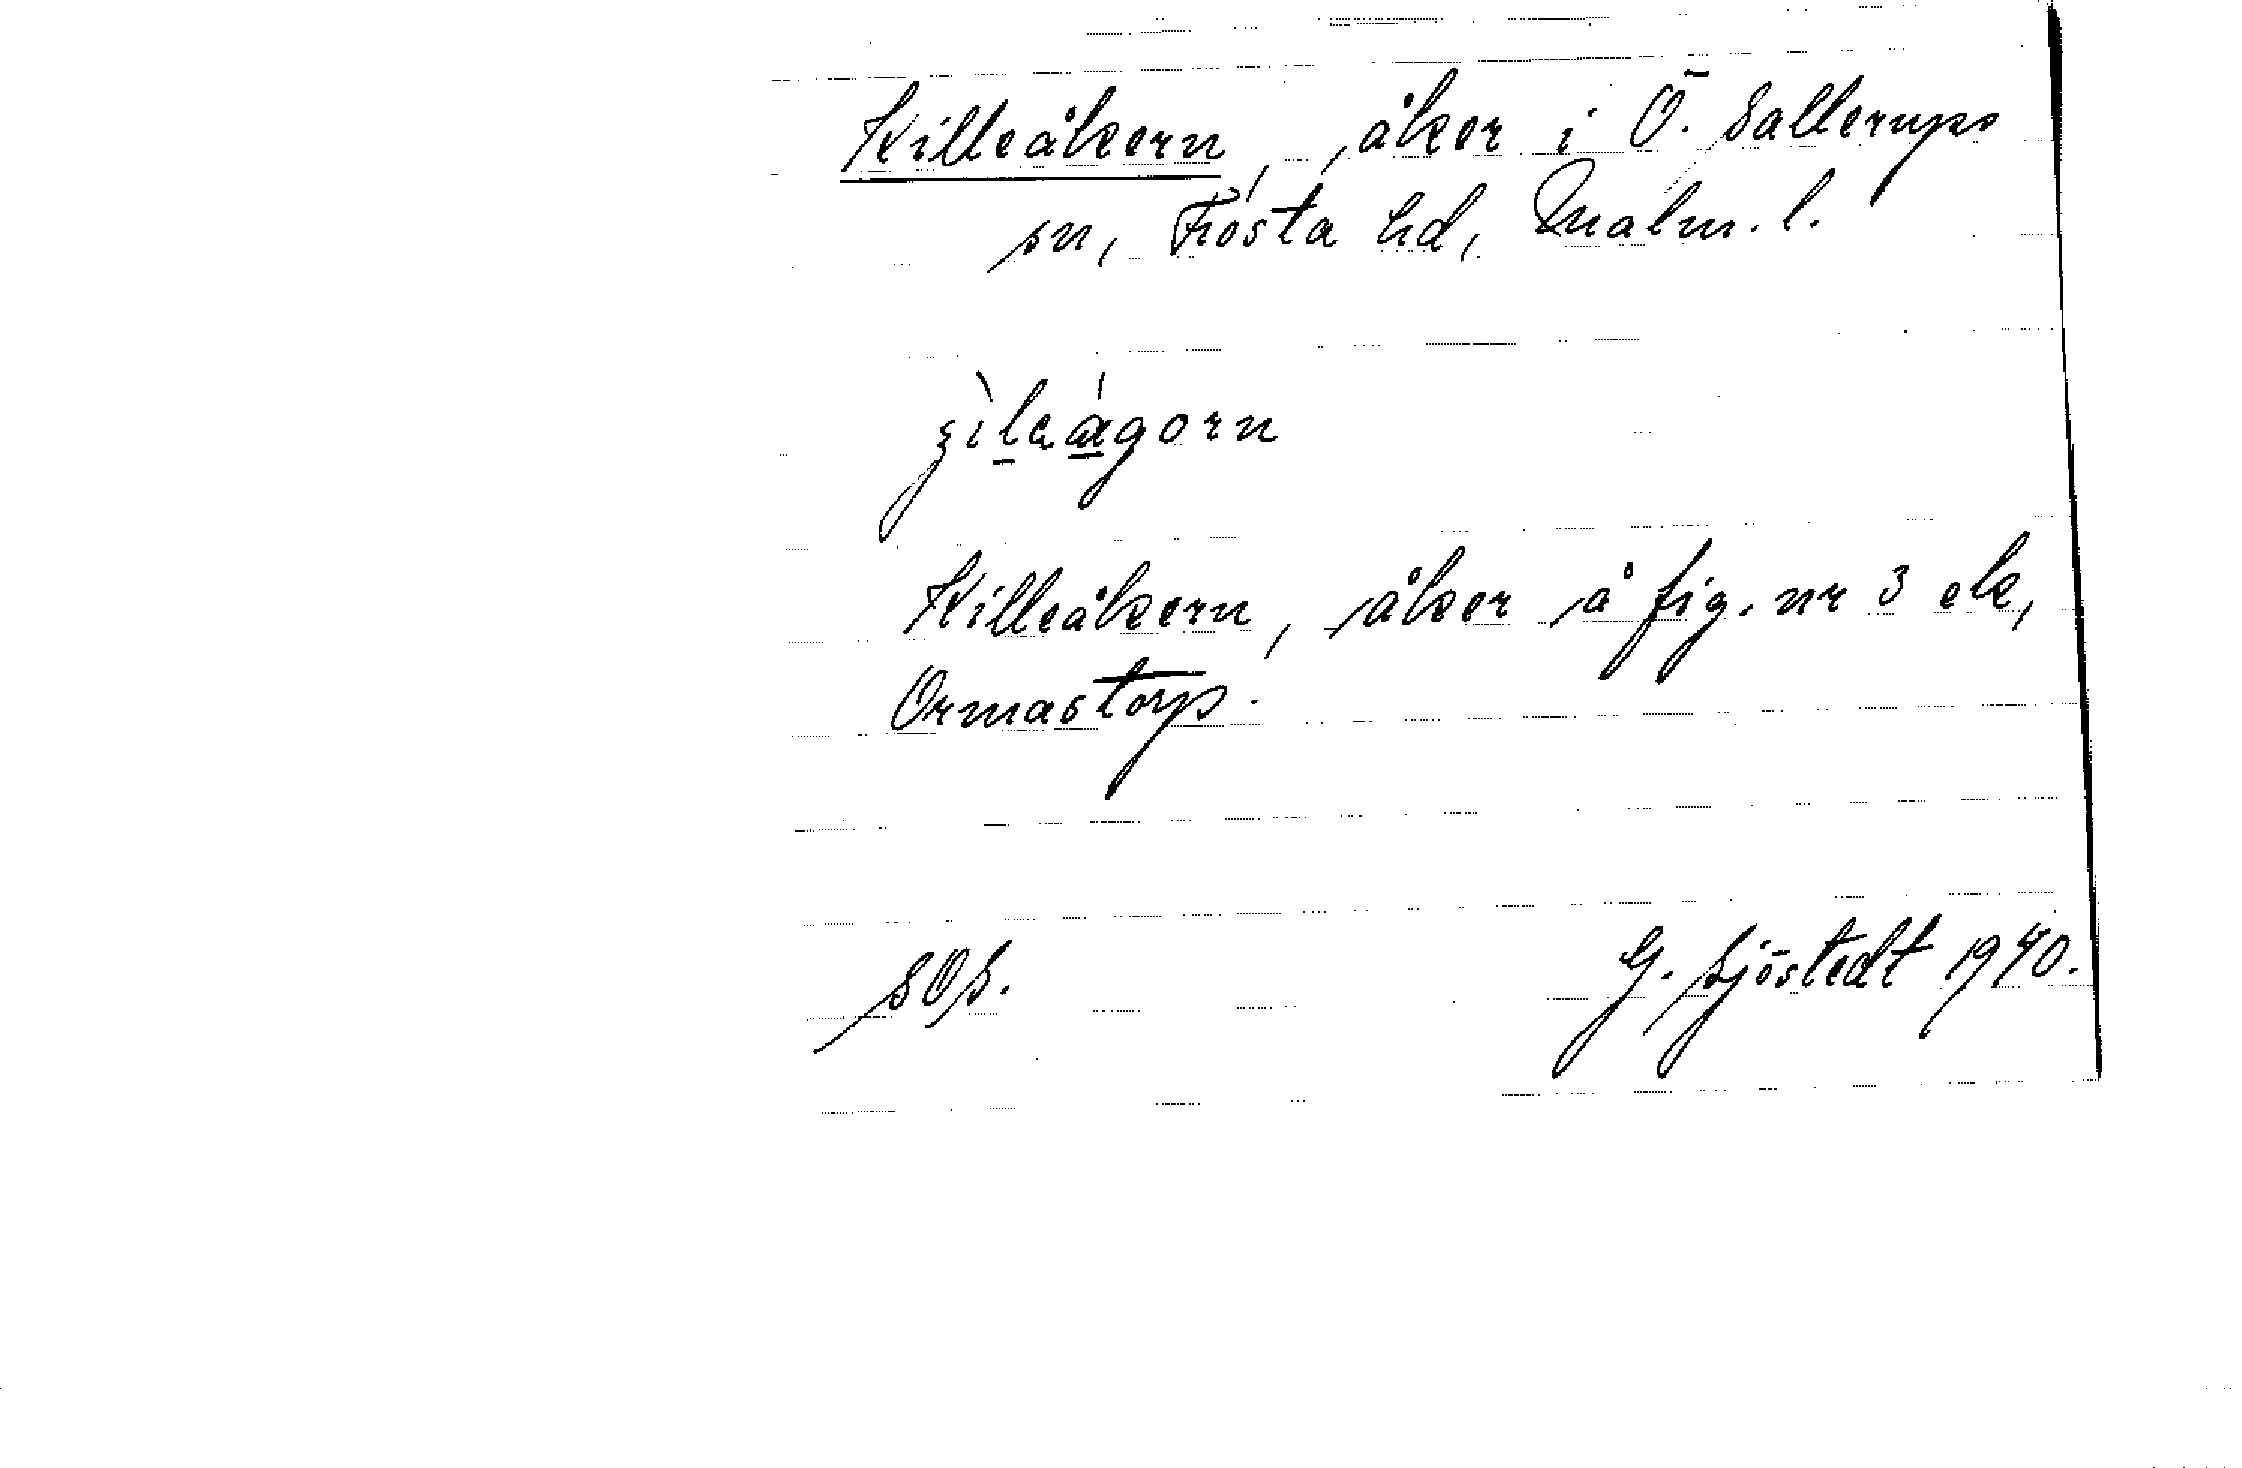 Killeåkern, åker i Ö. Sallerups
sn, Frosta hd, Malm. l.
Killeåkern, åker å fig. nr 3 ek,
Ormastorp.
G. Sjöstedt 1940.